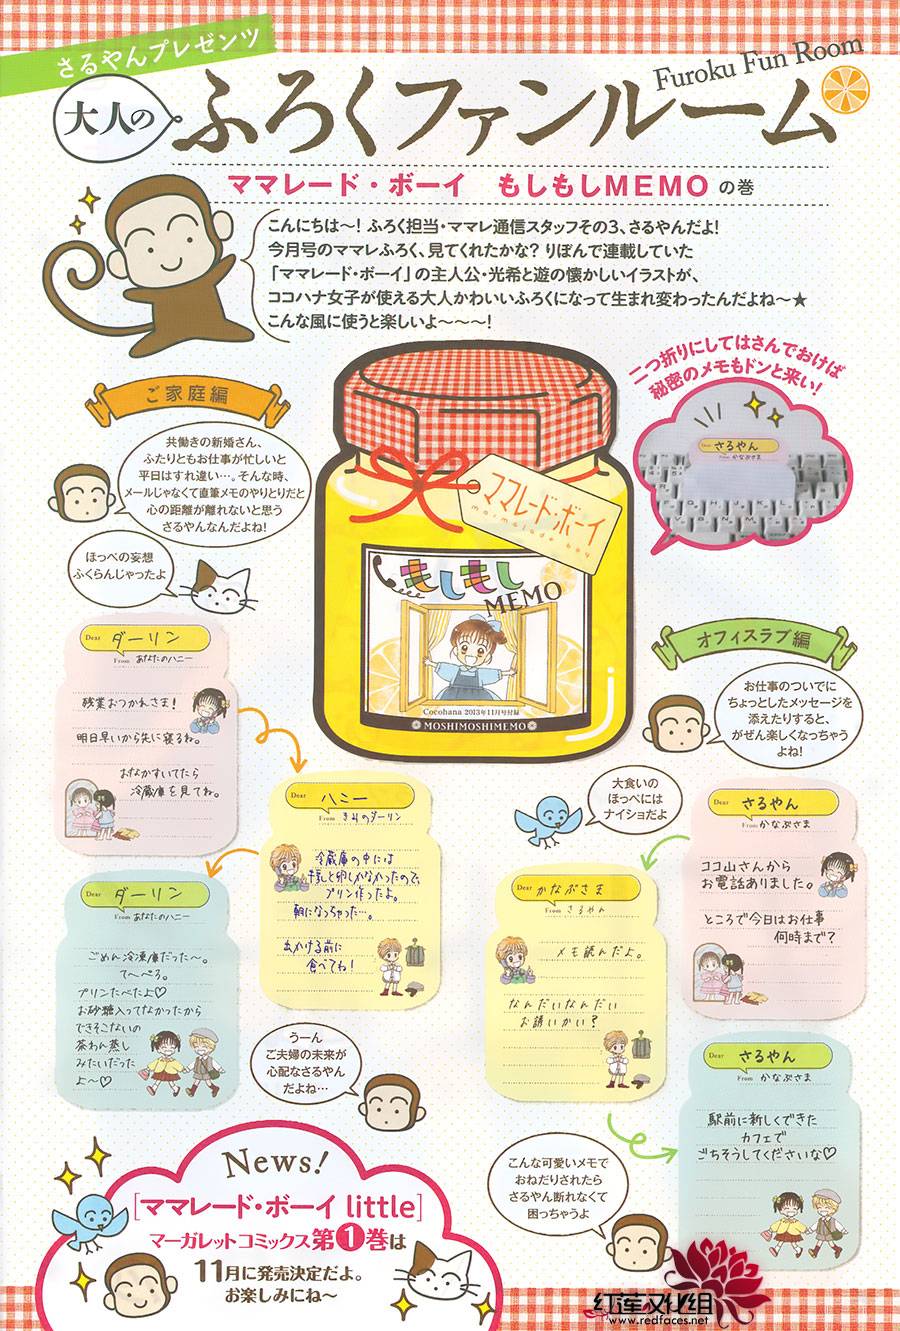 さるやんプレゼンツ
大人の
ふろくファンルーム
Furoku Fun Room
ママレード・ボーイ もしもしMEMO の巻
こんにちは〜! ふろく担当・ママレ通信スタッフその3、さるやんだよ!
今月号のママレふろく、見てくれたかな? りぼんで連載していた
「ママレード・ボーイ」の主人公・光希と遊の懐かしいイラストが、
ココハナ女子が使える大人かわいいふろくになって生まれ変わったんだよね〜★
こんな風に使うと楽しいよ〜〜〜!
二つ折りにしてはさんでおけば
秘密のメモもドンと来い!
Dear さるやん
From かなぶさま
ご家庭編
共働きの新婚さん、
ふたりともお仕事が忙しいと
平日はすれ違い…。そんな時、
メールじゃなくて直筆メモのやりとりだと
心の距離が離れないと思う
さるやんなんだよね!
ほっぺの妄想
ふくらんじゃったよ
ママレード・ボーイ
marmalade boy
もしもし
MEMO
Cocohana 2013年11月号付録
MOSHIMOSHIMEMO
Dear ダーリン
From あなたのハニー
残業おつかれさま!
明日早いから先に寝るね。
おなかすいてたら
冷蔵庫を見てね。
Dear ハニー
From きみのダーリン
冷蔵庫の中には
牛乳と卵しかなかったので、
プリン作ったよ。
朝になっちゃった…。
出かける前に
食べてね!
Dear ダーリン
From あなたのハニー
ごめん冷凍庫だった〜。
て〜へろ。
プリンたべたよ♡
お砂糖入ってなかったから
できそこないの
茶わん蒸し
みたいだった
よ〜♡
うーん
ご夫婦の未来が
心配なさるやん
だよね…
オフィスラブ編
お仕事のついでに
ちょっとしたメッセージを
添えたりすると、
がぜん楽しくなっちゃう
よね!
大食いの
ほっぺには
ナイショだよ
Dear さるやん
From かなぶさま
ココ山さんから
お電話ありました。
ところで今日はお仕事
何時まで?
Dear かなぶさま
From さるやん
メモ読んだよ。
なんだいなんだい
お誘いかい?
Dear さるやん
From かなぶさま
駅前に新しくできた
カフェで
ごちそうしてくださいな♡
こんな可愛いメモで
おねだりされたら
さるやん断れなくて
困っちゃうよ
News!
[ママレード・ボーイ little]
マーガレットコミックス第1巻は
11月に発売決定だよ。
お楽しみにね〜
红莲汉化组
www.redfaces.net